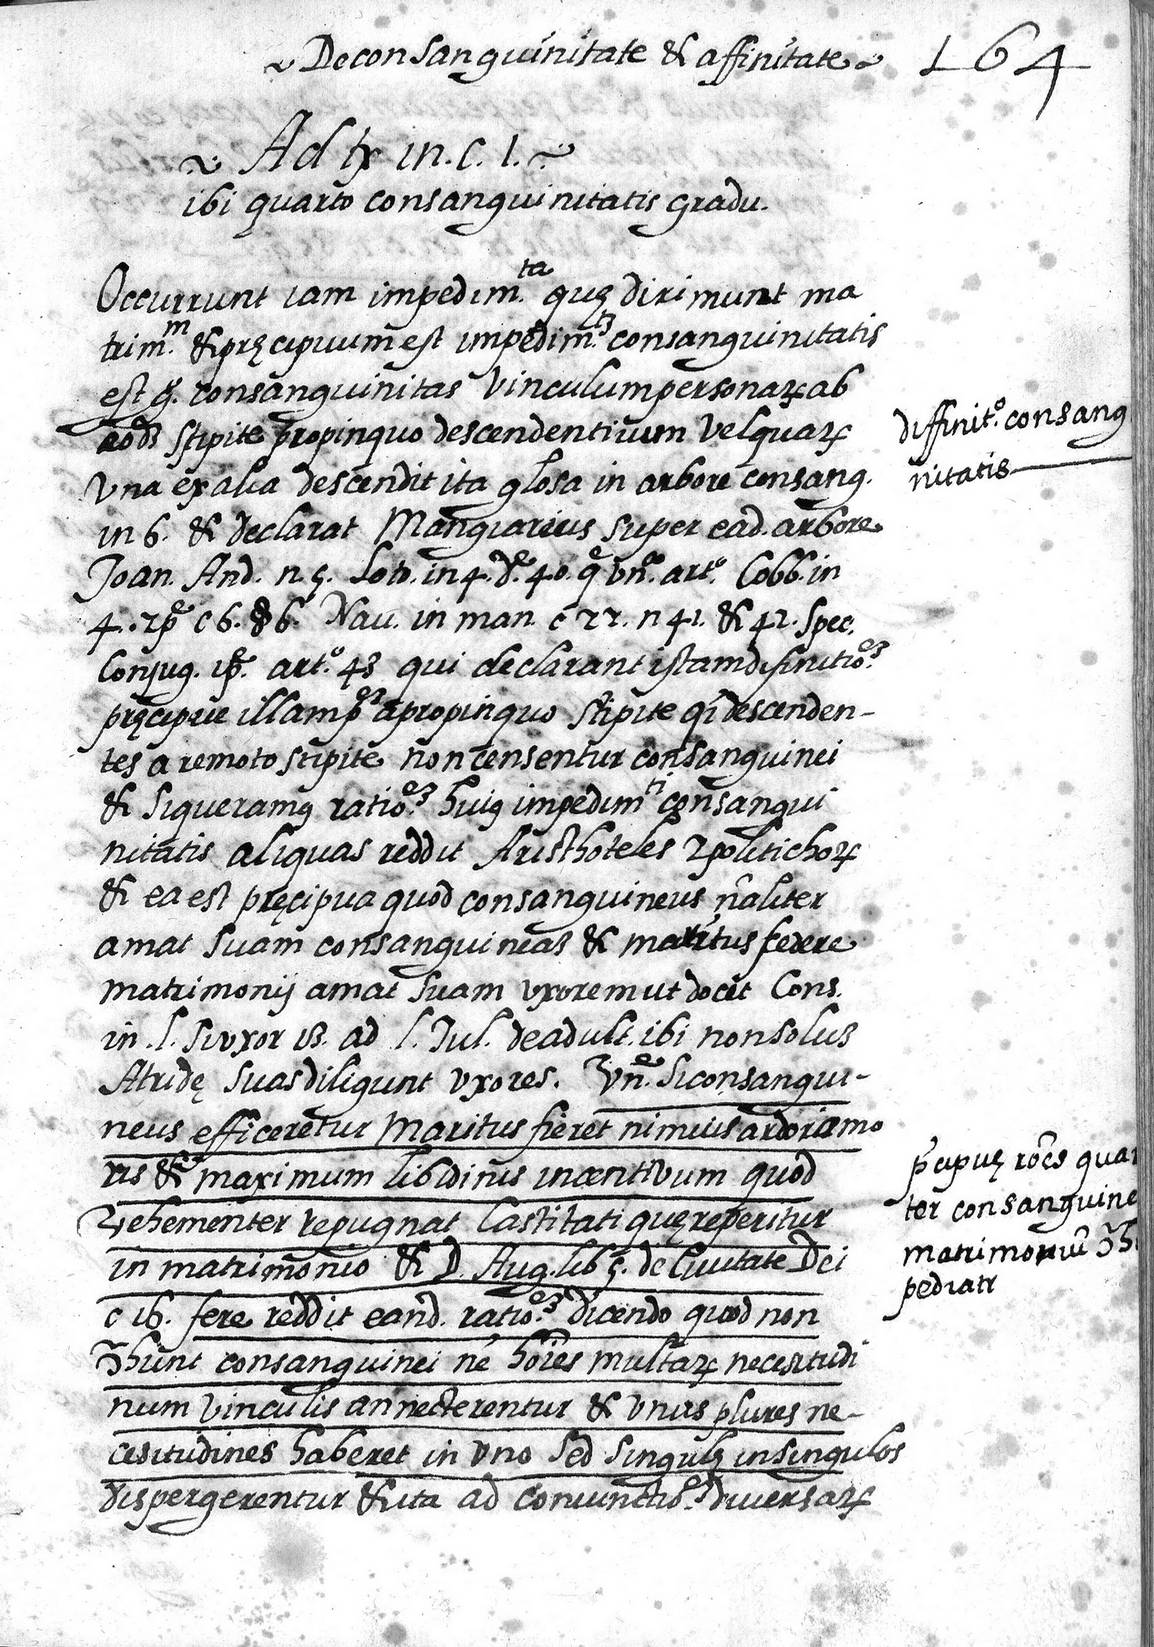 De consanguinitate & affinitate 164
Ad tx in. c. 1.
ibi quarto consanguinitatis gradu.
Occurrunt iam impedim.ta quę dirimunt ma
trim.m & pręcipuum est impedim.tȝ consanguinitatis
est g. consanguinitas vinculum personarꝝ ab
eodȝ stipite propinquo descendentium vel quarꝝ
vna ex alia descendit ita glosa in arbore consang.
in 6. & declarat Mangiarius super ead. arbore
Joan. And. n. 5. Soto. in 4. d. 40. q vn. art.o Cobb. in
4. 2p c 6. § 6. Nau. in man c 22. n 41. & 42. Spec.
Conjug. 1p. art.o 43 qui declarant istam difinitio.ȝ
pręcipue illam a propinquo stipite qi descenden-
tes a remoto stipite non censentur consanguinei
& si queramꝰ ratio.ȝ huiꝰ impedim.ti consangui
nitatis aliquas reddit Aristhoteles 2 politichorꝝ
& ea est pręcipua quod consanguineus naliter
amat suam consanguineas & maritus federe
matrimonij amat suam vxorem ut docet Cons.
in l. si vxor §. ad l. Jul. de adult. ibi non solus
Atridę suas diligunt vxores. vn. si consangui-
neus efficeretur Maritus fieret nimius ardor amo
ris & maximum libidinis incentivum quod
vehementer repugnat castitati quę reperitur
in matrimonio & D. Aug. lib 5. de Ciuitate Dei
c 16. fere reddit eand. ratio.ȝ dicendo quod non
nhunt consanguinei ne hoies multarꝝ necesitudi
num vinculis annecterentur & vnus plures ne-
cesitudines haberet in vno sed singulę in singulos
dispergerentur & ita ad coniunctio.ȝ diuersarꝝ
diffinit.o consang
nitatis
pcipuę roes qua
ter consanguine
matrimoniu
pediatr